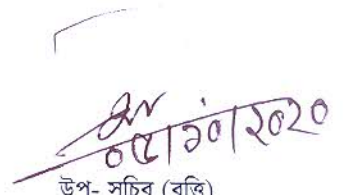 ০৫/১০/২০২০
উপ- সচিব (বৃত্তি)